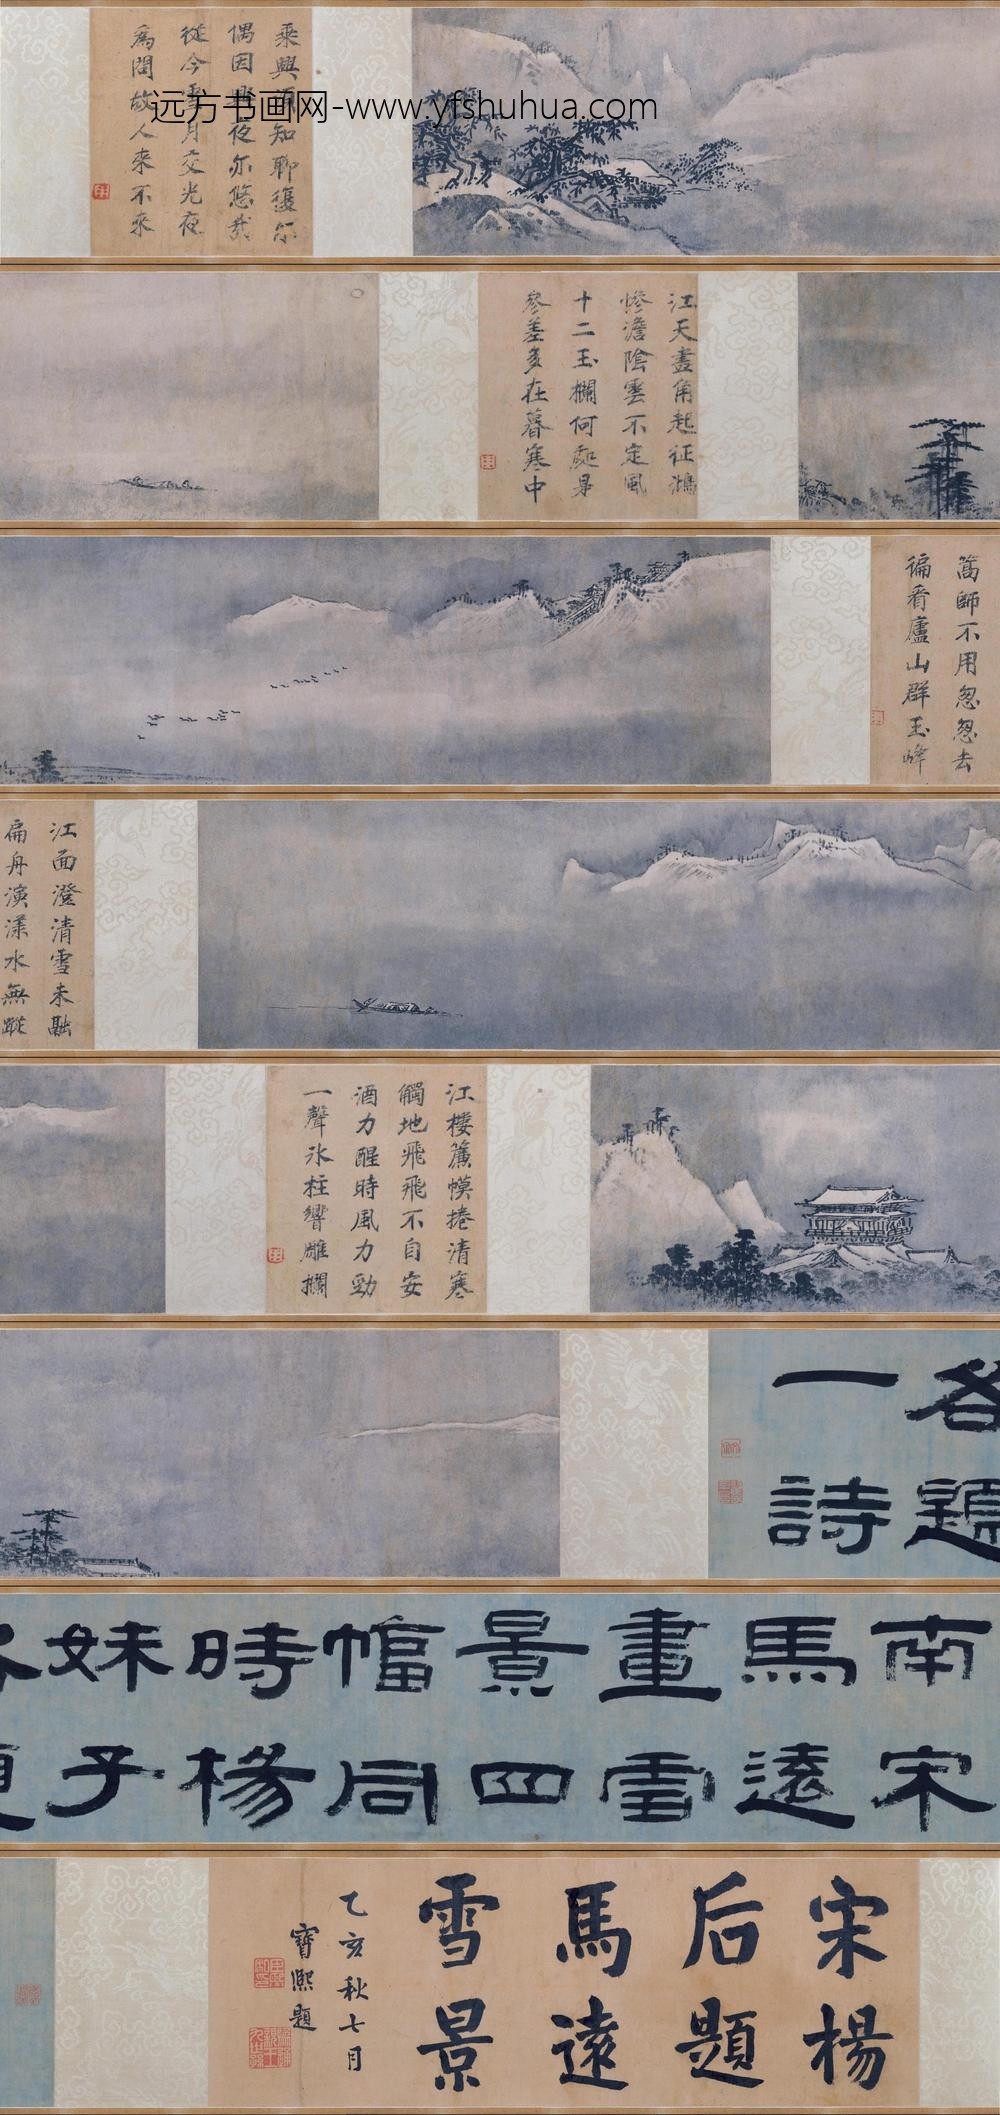 远方书画网-www.yfshuhua.com
乘興須知聊復尔
偶因興亦悠哉
從今雪月交光夜
為問故人來不來
江天畫角起征鴻
慘澹陰雲不定風
十二玉欄何處是
參差多在暮寒中
篙師不用怱怱去
徧看廬山群玉峰
江面澄清雪未融
扁舟演漾水無蹤
江樓簾幙捲清寒
觸地飛飛不自安
酒力醒時風力勁
一聲冰柱響雕欄
各題
一詩
南宋
馬遠
畫雪
景四
幅同
時楊
妹子
宋楊
后題
馬遠
雪景
乙亥秋七月
寶熙題